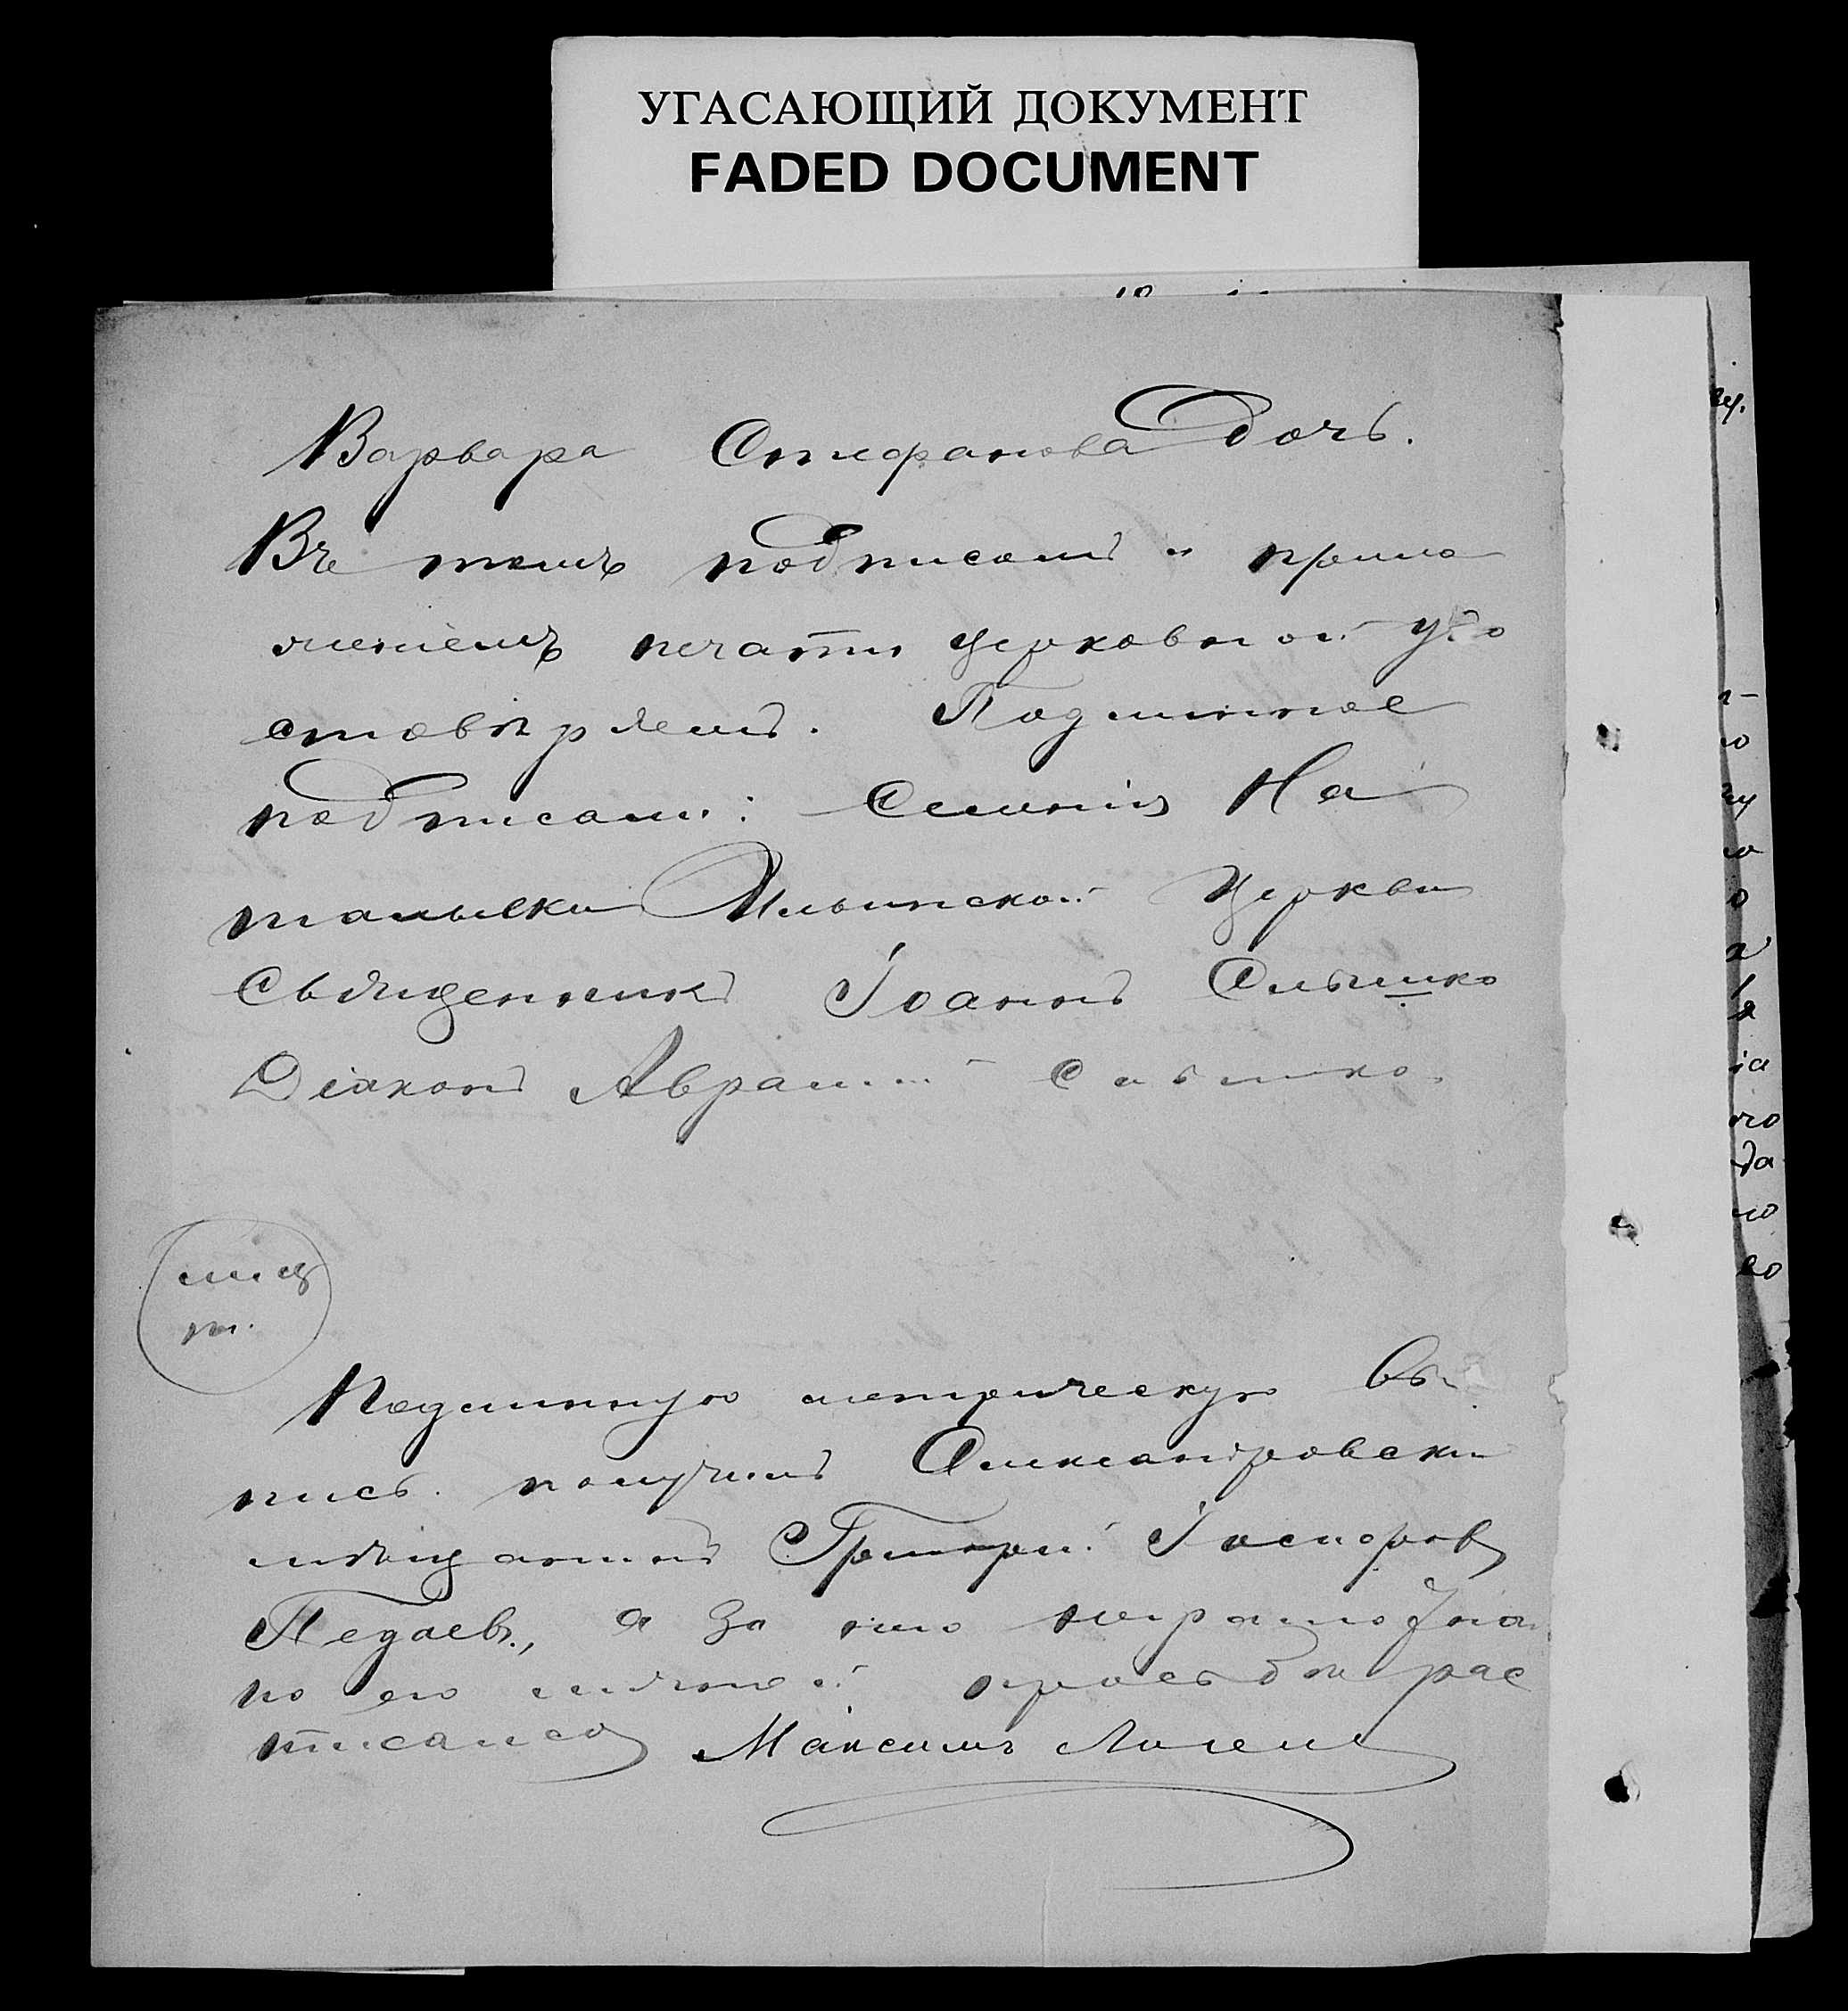 УГАСАЮЩИЙ ДОКУМЕНТ
FADED DOCUMENT
Варвара Стефанова дочь.
Въ томъ подписомъ и прило
женіемъ печати церковной удо
стовѣряемъ. Подлинное
подписали: Селенія На
тальевки Ильинской церкви
Священникъ Іоаннъ Слышко
Діаконъ Аврамій
мѣсц
п.
Подлинную метрическую вы
пись получилъ Александровскій
мѣщанинъ Григорій Іосифовъ
Педаевъ, а за него неграмотна
по его личной прозьбѣ рас
писался Максимъ